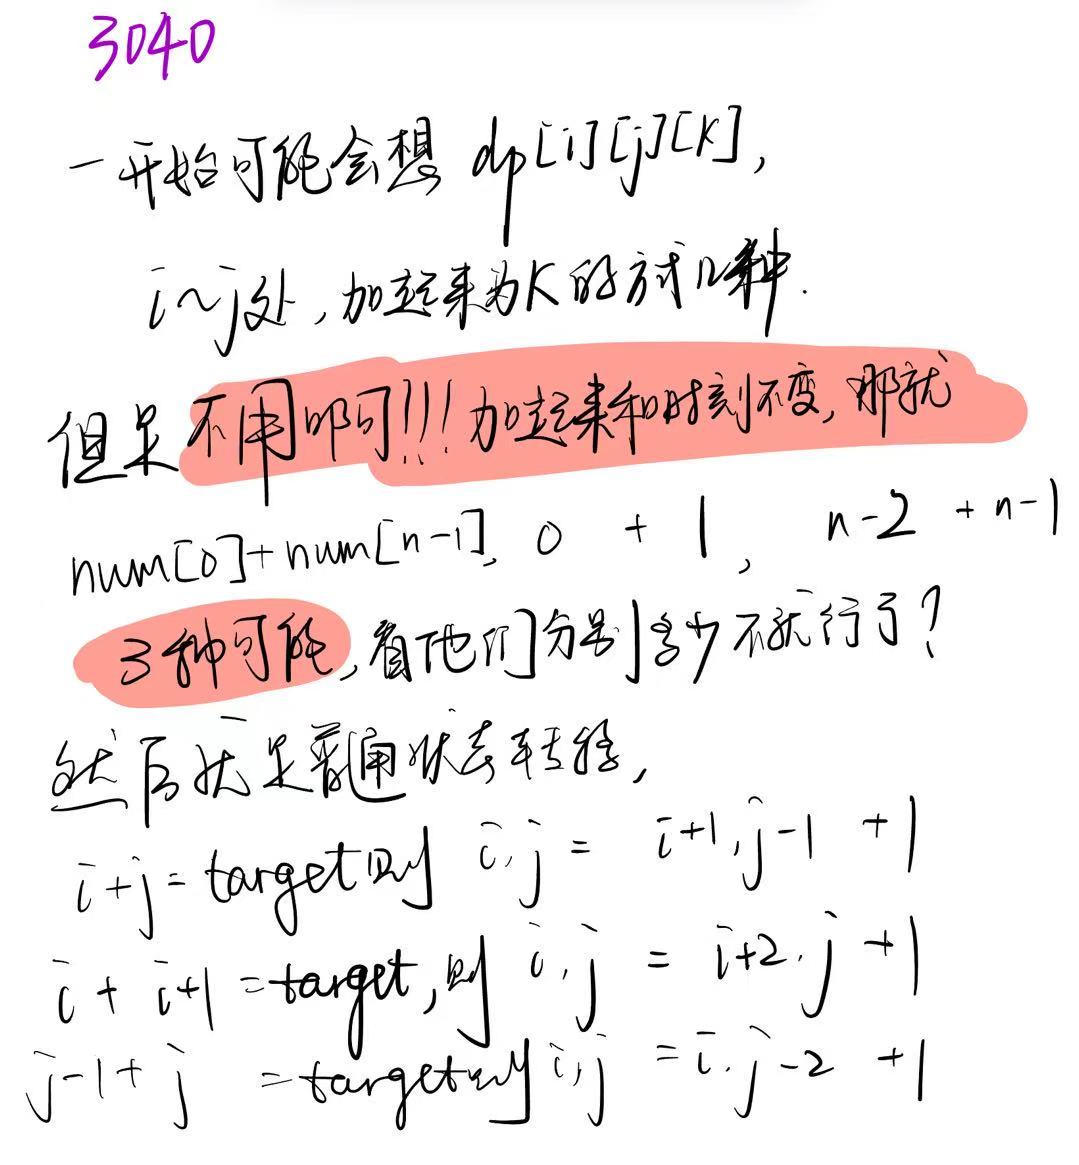 3040
一开始可能会想 dp[i][j][k],
i~j处,加起来为K的方式几种.
但是不用即可!!!加起来和时刻不变,那就
num[0]+num[n-1], 0 + 1, n-2 + n-1
3种可能,看他们分别多少不就行了?
然后就是普通状态转移,
i+j=target则 i,j = i+1,j-1 +1
i + i+1 =target,则 i,j = i+2,j +1
j-1+j =target则 i,j =i,j-2 +1